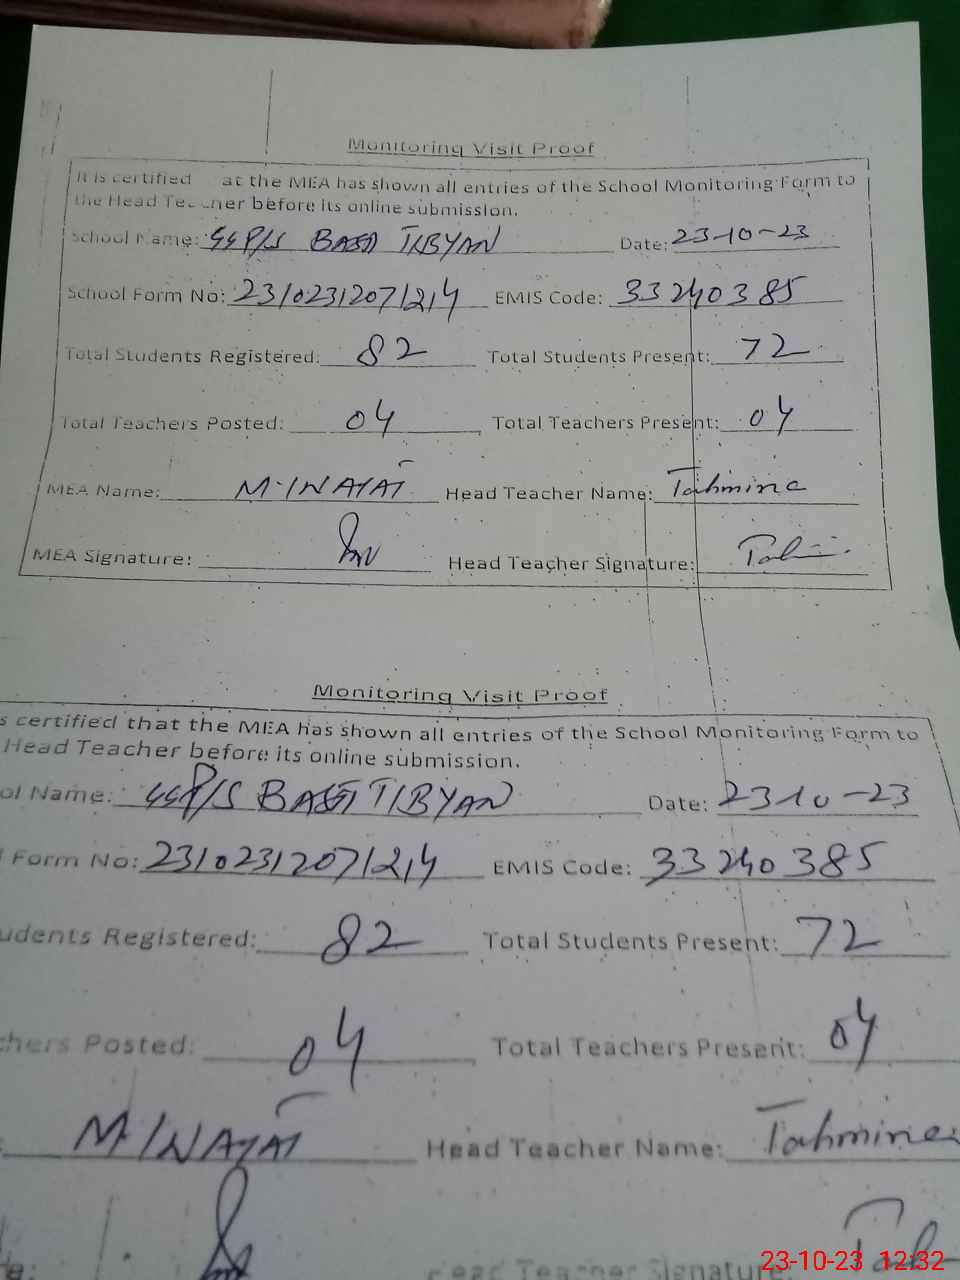 Monitoring Visit Proof
It is certified at the MEA has shown all entries of the School Monitoring Form to
the Head Teacher before its online submission.
School Name: TIBYAN Date: 23-10-23
School Form No: 231023120711214 EMIS Code: 33240385
Total Students Registered: 82 Total Students Present: 72
Total Teachers Posted: 04 Total Teachers Present: 04
MEA Name: M.INAYAT Head Teacher Name: Tahmina
MEA Signature: Head Teacher Signature:
Monitoring Visit Proof
s certified that the MEA has shown all entries of the School Monitoring Form to
Head Teacher before its online submission.
ol Name: TIBYAN Date: 23-10-23
Form No: 231023120711214 EMIS Code: 33240385
udents Registered: 82 Total Students Present: 72
chers Posted: 04 Total Teachers Present: 04
M.INAYAT Head Teacher Name: Tahmina
Head Teacher Signature
23-10-23 12:32